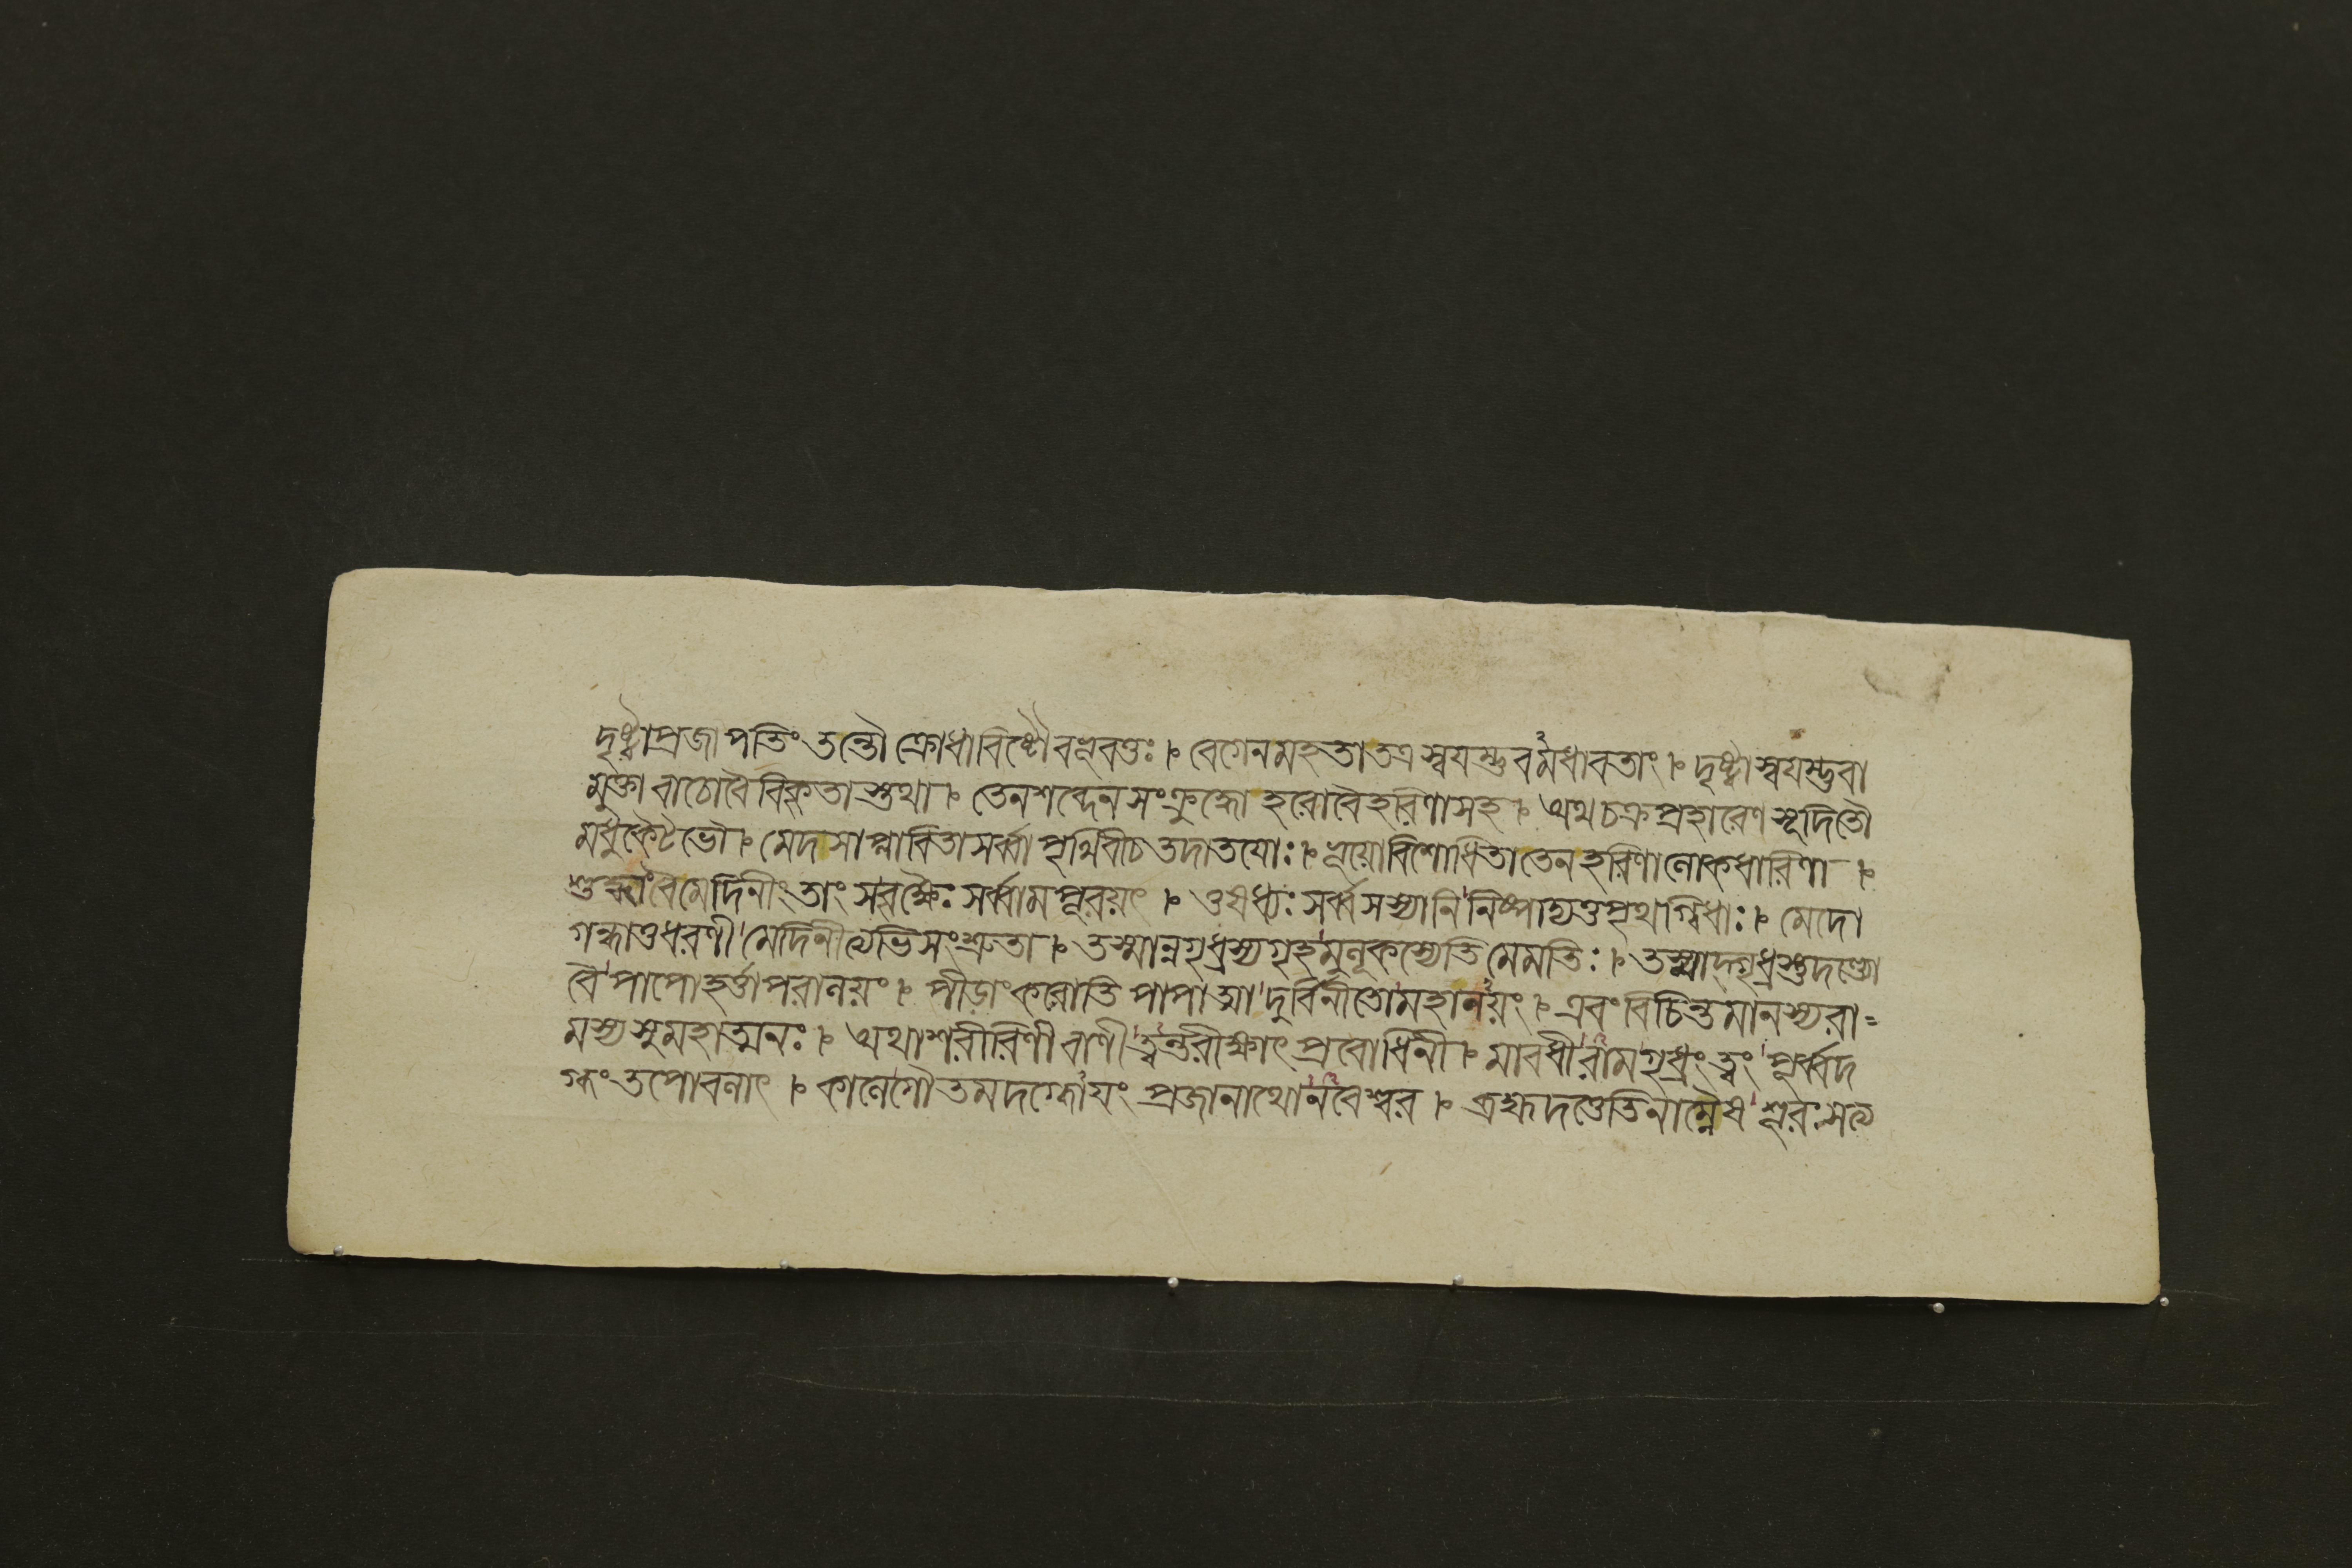 দৃষ্ট্বাপ্রজাপতিং তন্তৌ ক্রোধাবিষ্টৌ বলবতঃ । বেগেন মহতা তত্র স্বয়ম্ভুবমধাবতাং । দৃষ্ট্বা স্বয়ম্ভুবা
মুক্তা বাঠোবৈ বিকৃতাস্তথা । তেন শব্দেন সংক্রুদ্ধো হরোবৈ হরিণাসহ । অথ চক্রপ্রহারেণ সূদিতৌ
মধুকৈটভৌ । মেদসাপ্লাবিতাসর্ব্বা পৃথিবীচ তদাতয়োঃ । ভূয়ো বিশোধিতা তেন হরিণালোকধারিণা ।
শুদ্ধাংবৈমেদিনীং তাং সবৃক্ষৈঃ সর্ব্বামপূরয়ৎ । ওষধ্যঃ সর্ব্বসস্যানি নিষ্পাদ্যতপৃথগ্বিধাঃ । মেদো
গন্ধাতুধরণী মেদিনীত্যভিসংশ্রুতা । তস্মান্নগৃধ্রস্য গৃহমুলূকস্যেতি মে মতিঃ । তস্মাদ্গৃধ্রস্তু দণ্ড্যো
বৈ পাপো হর্ত্তাপরালয়ং । পীড়াং করোতি পাপাত্মা দুর্বিনীতো মহানয়ং । এবং বিচিন্তমানস্য রা=
মস্য সুমহাত্মনঃ । অথাশরীরিণী বাণী ত্বন্তরীক্ষাৎ প্রবোধিনী । মাবধীরামগৃধ্রং ত্বং পূর্ব্বদ
গ্ধং তপোবলাৎ । কালেগৌতমদগ্ধোয়ং প্রজানাথোনরেশ্বর । ব্রহ্মদত্তেতিনাম্নৈষ শূরঃ সত্য